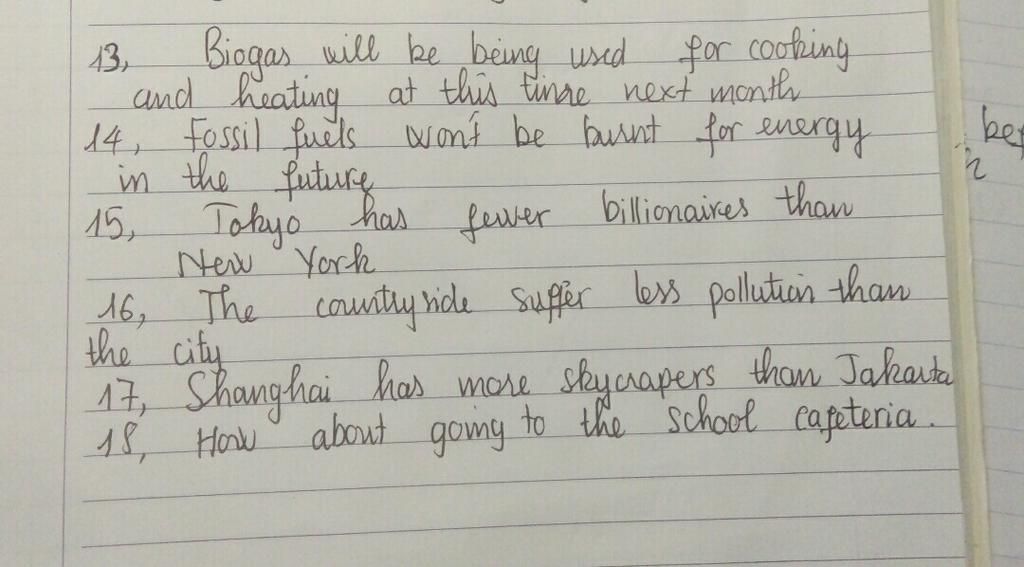 13, Biogas will be being used for cooking
and heating at this time next month
14, Fossil fuels won't be burnt for energy
in the future
15, Tokyo has fewer billionaires than
New York
16, The countryside suffer less pollution than
the city
17, Shanghai has more skycrapers than Jakarta
18, How about going to the school cafeteria.